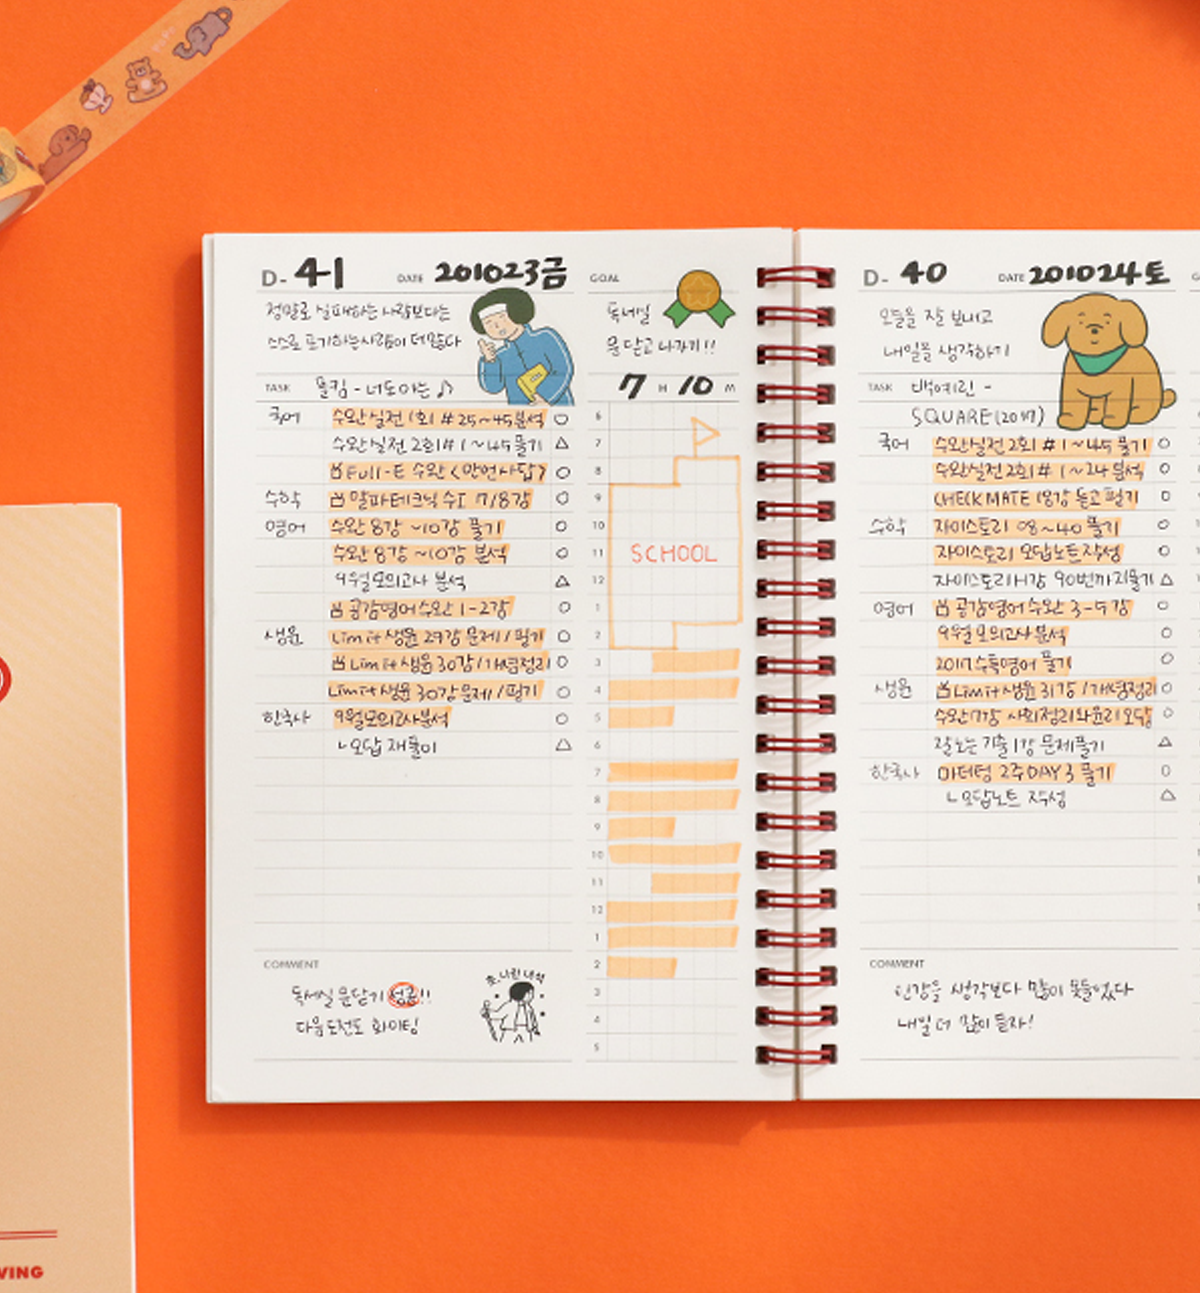 D- 41 DATE 201023금
정말로 실패하는 사람보다는
스스로 포기하는 사람이 더 많다
TASK 폴킴 - 너도 아는 ♪
국어 수완실전 1회 #25~45 분석 ○
수완실전 2회 #1~45 풀기 △
Full-E 수완 <만언사답> ○
수학 알파테크닉 수I 7/8강 ○
영어 수완 8강 ~10강 풀기 ○
수완 8강 ~10강 분석 ○
9월 모의고사 분석 △
공감영어 수완 1-2강 ○
생윤 Limit 생윤 29강 문제/필기 ○
Limit 생윤 30강/개념정리 ○
Limit 생윤 30강 문제/필기 ○
한국사 9월 모의고사 분석 ○
ㄴ오답 재풀이 △
COMMENT
독서실 문닫기 성공!!
다음 도전도 화이팅
GOAL
독서실
문 닫고 나가기!!
7 H 10 M
6
7
8
9
10
11 SCHOOL
12
1
2
3
4
5
6
7
8
9
10
11
12
1
2
3
4
5
D- 40 DATE 201024토
오늘을 잘 보내고
내일을 생각하기
TASK 백예린 -
SQUARE(2017)
국어 수완실전 2회 #1~45 풀기 ○
수완실전 2회 #1~24 분석 ○
CHECKMATE 18강 듣고 필기 ○
수학 자이스토리 08~40 풀기 ○
자이스토리 오답노트 작성 ○
자이스토리 H강 90번까지 풀기 △
영어 공감영어 수완 3-5강 ○
9월 모의고사 분석 ○
2017 수특영어 풀기 ○
생윤 Limit 생윤 31강/개념정리 ○
수완 7강 사회정의와 윤리 오답 ○
잘노는 기출 1강 문제풀기 △
한국사 마더텅 2주 DAY3 풀기 ○
ㄴ오답노트 작성 △
COMMENT
인강을 생각보다 많이 못들었다
내일 더 많이 듣자!
VING